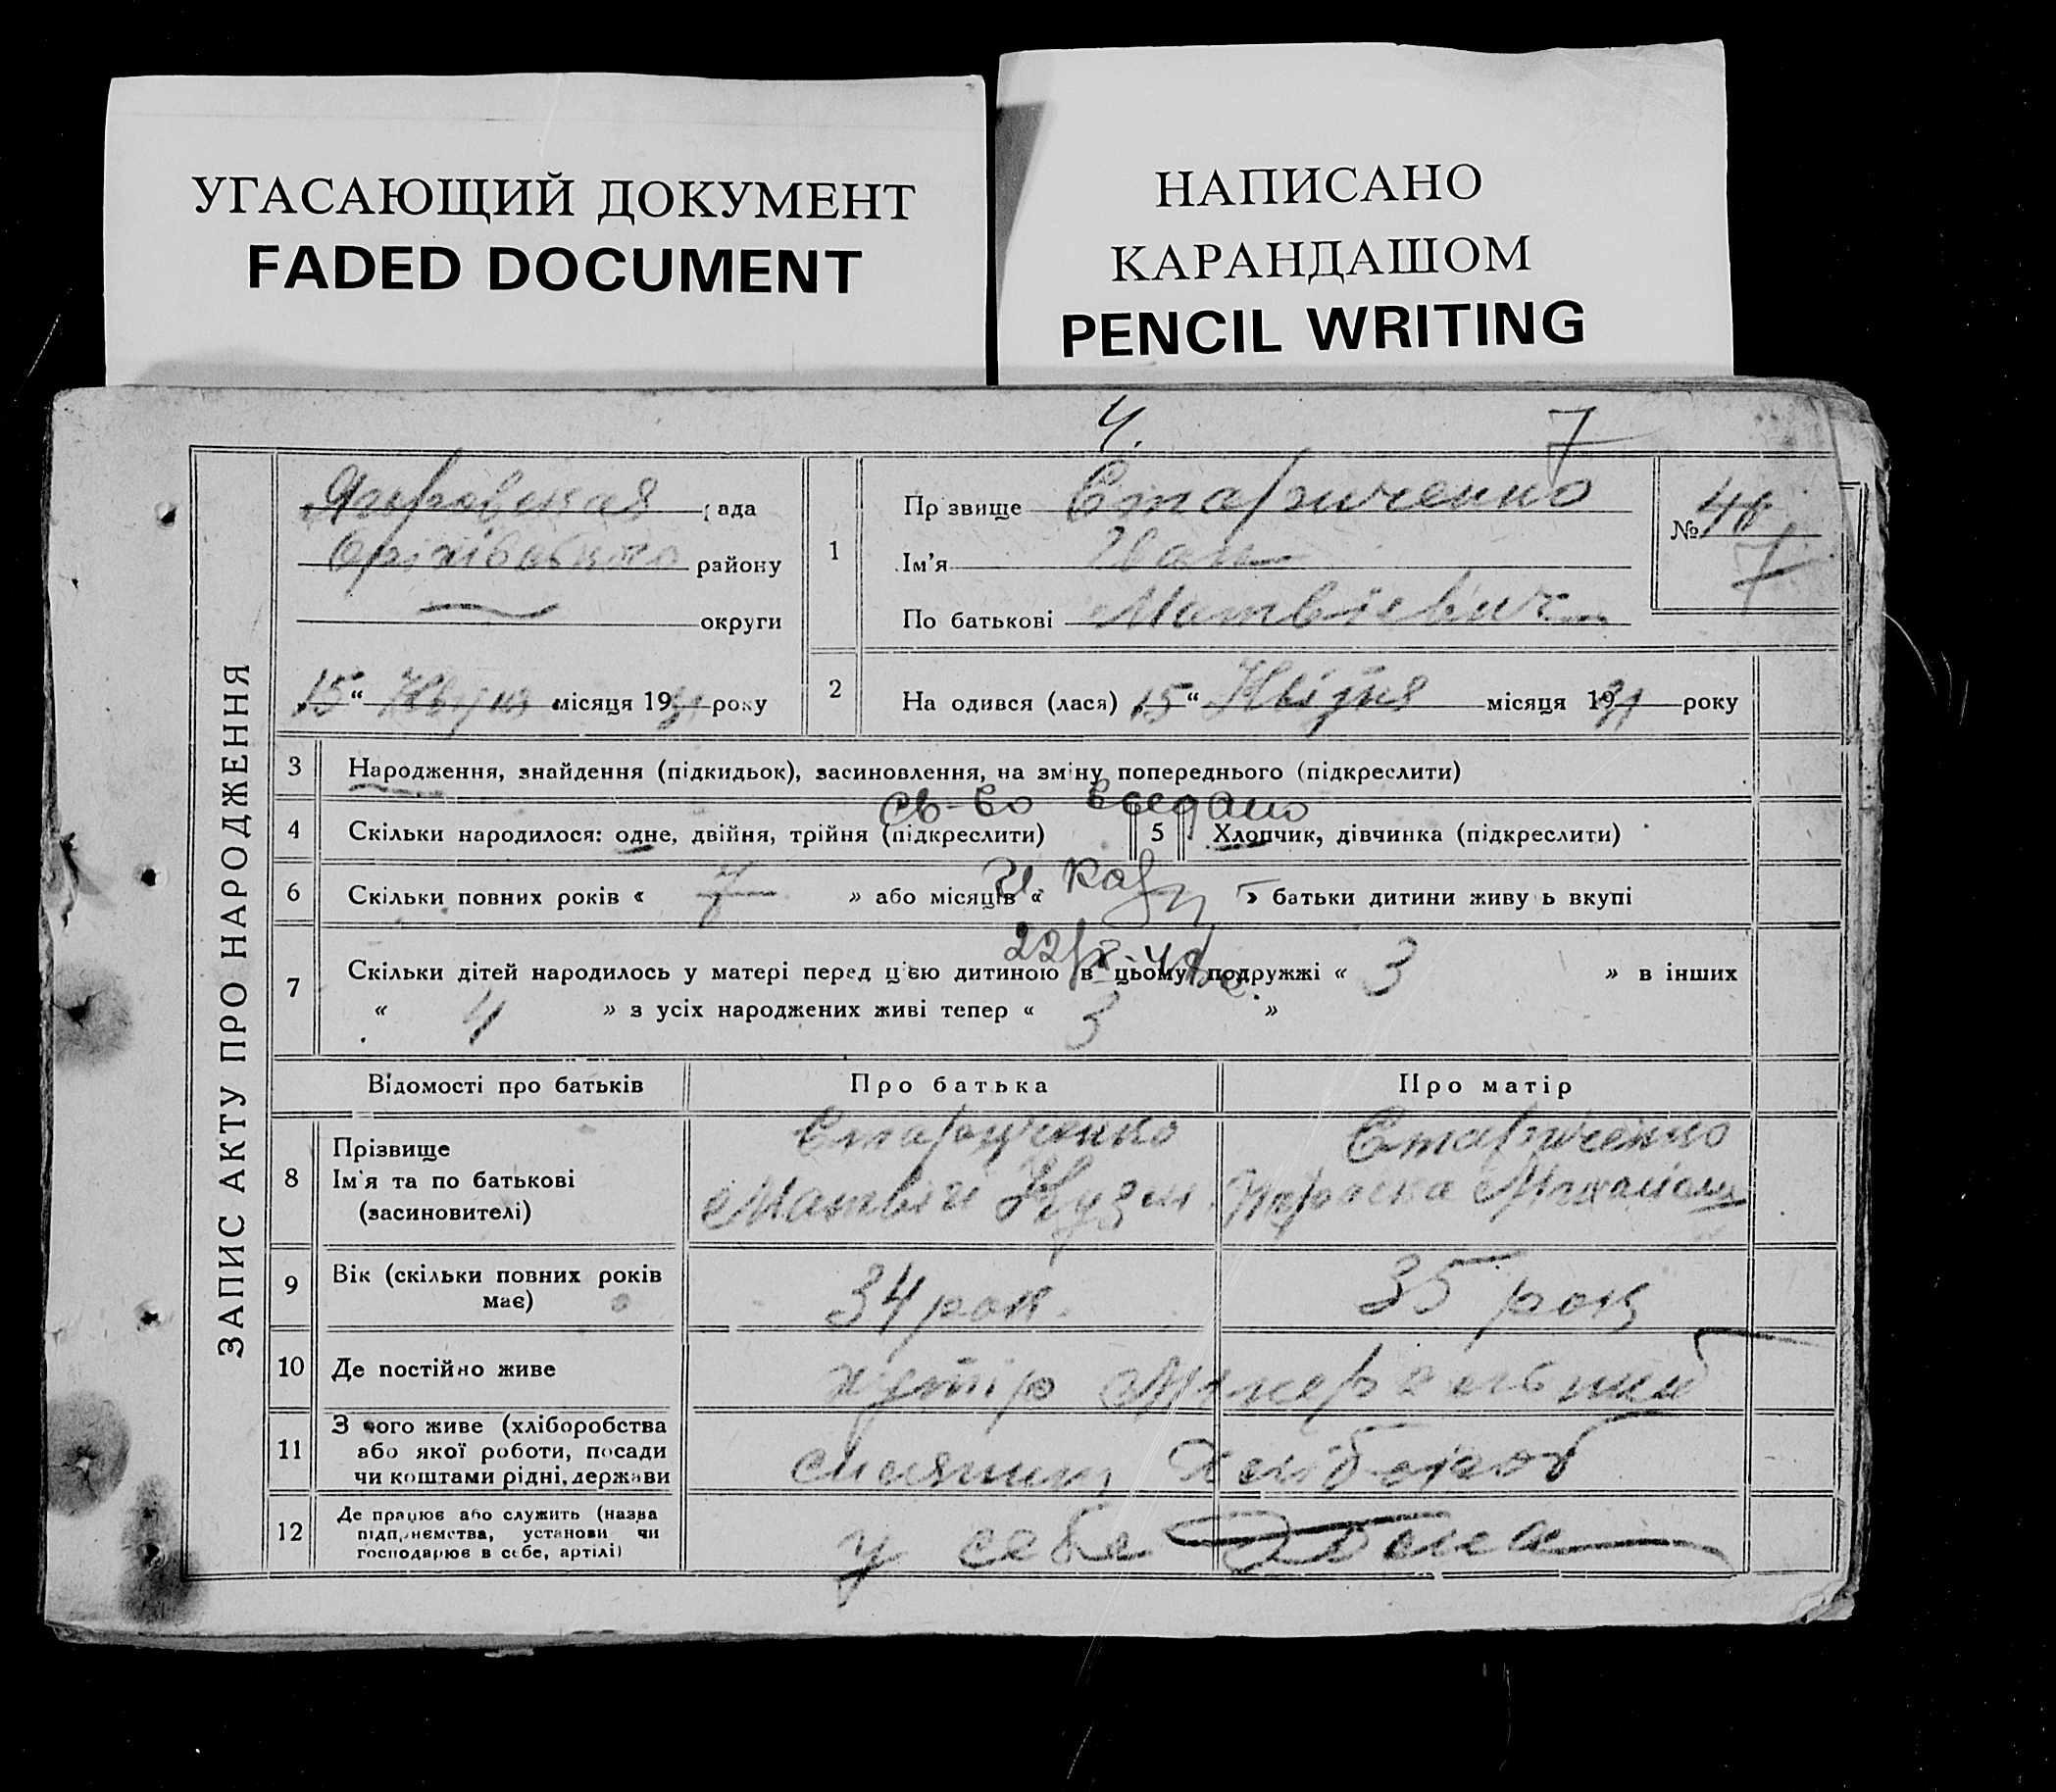 УГАСАЮЩИЙ ДОКУМЕНТ
FADED DOCUMENT
НАПИСАНО
КАРАНДАШОМ
PENCIL WRITING
4.
7
ЗАПИС АКТУ ПРО НАРОДЖЕННЯ
рада
району
округи
15 “ місяця 1931 року
1
Прзвище Старченко
Ім'я Иван
По батькові Матвієвич
№
7
2
На одився (лася) 15 “ Квітня місяця 1931 року
3 Народження, знайдення (підкидьок), засиновлення, на зміну попереднього (підкреслити)
св-во
4 Скільки народилося: одне, двійня, трійня (підкреслити) 5 Хлопчик, дівчинка (підкреслити)
6 Скільки повних років « 7 » або місяців « » батьки дитини живу ь вкупі
7 Скільки дітей народилось у матері перед цією дитиною в цьому подружжі « 3 » в інших
« 4 » з усіх народжених живі тепер « 3 »
Відомості про батьків Про батька Про матір
8 Прізвище
Ім'я та по батькові
(засиновителі)
Матвій Кузм.
9 Вік (скільки повних років
має)
34 рок. 35 рок
10 Де постійно живе хутір
11 З чого живе (хліборобства
або якої роботи, посади
чи коштами рідні, держави
хлібороб
12 Де працює або служить (назва
підприємства, установи чи
господарює в себе, артілі)
у себе